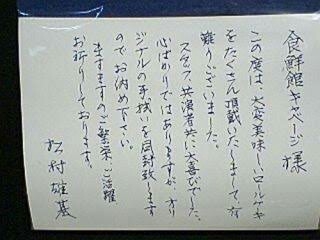 食鮮館キャベージ 様
この度は、大変美味しいロールケーキ
をたくさん頂戴いたしまして、有
難うございました。
スタッフ、共演者共に大喜びでした。
心ばかりではありますが、オリ
ジナルの手拭いを同封致します
のでお納め下さい。
ますますのご繁栄、ご活躍
お祈りしております。
松村雄基